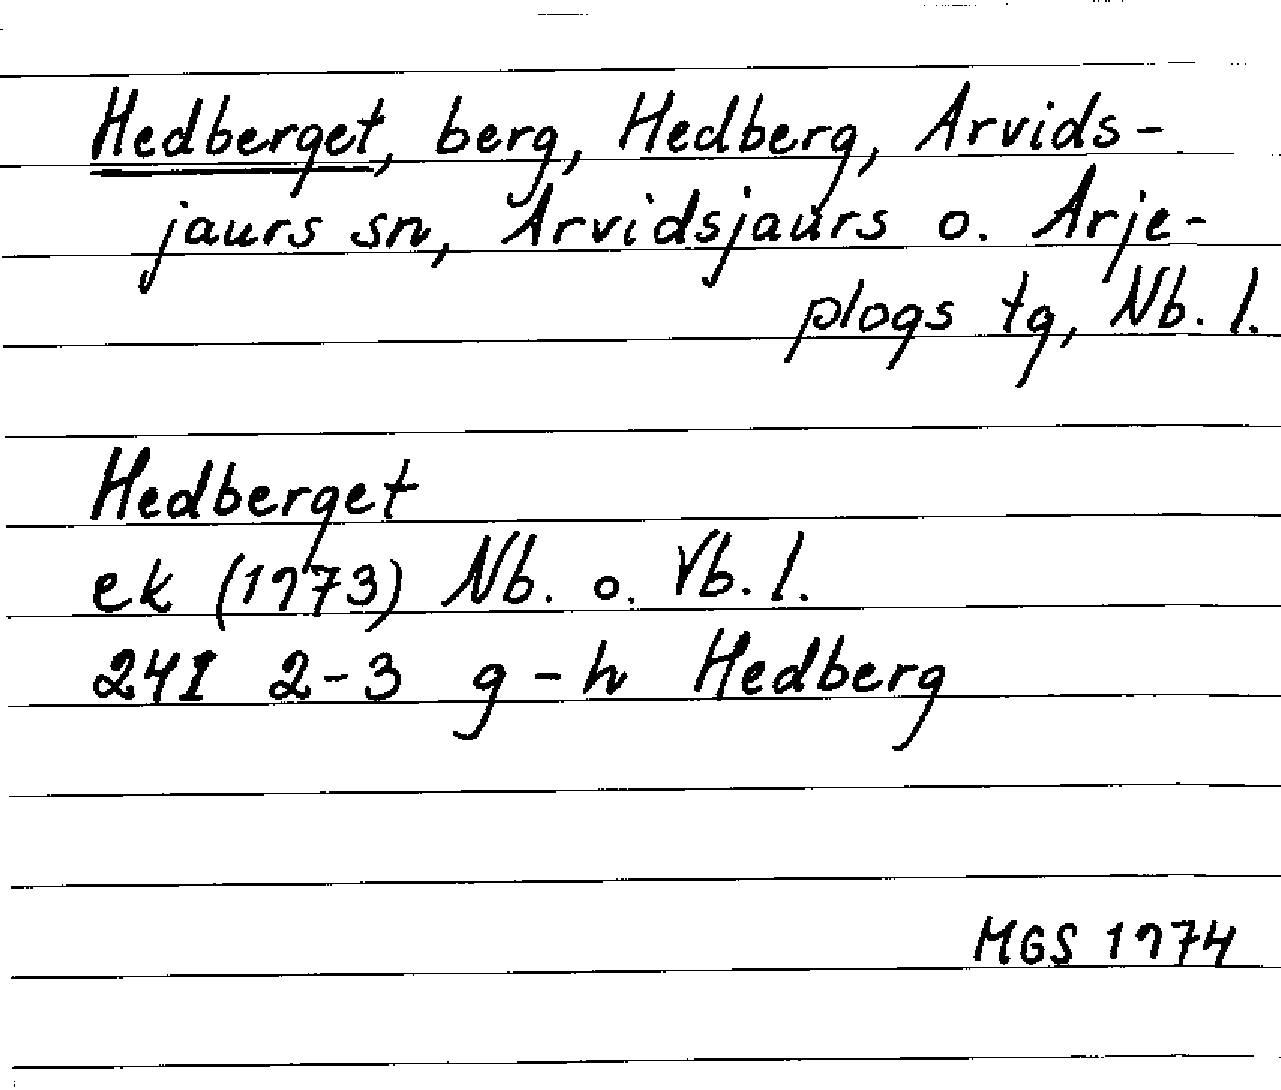 Hedberget, berg, Hedberg, Arvids-
jaurs sn, Arvidsjaurs o. Arje-
plogs tg, Nb. l.
Hedberget
ek (1973) Nb. o. Vb. l.
24I 2-3 g-h Hedberg
MGS 1974